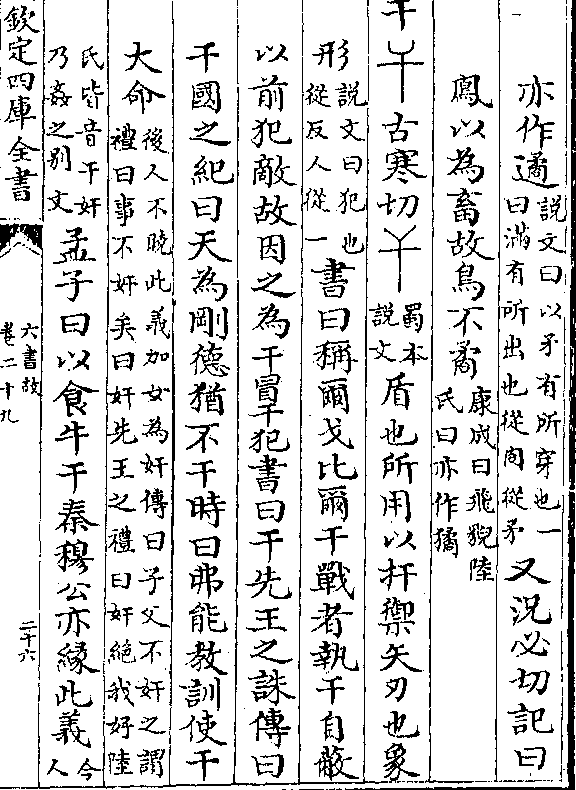 亦作遹說文曰以矛有所穿也一曰滿有所出也從㕯從矛又況必切記曰
鳳以為畜故鳥不矞康成曰飛貎陸氏曰亦作獝
干古寒切蜀本說文盾也所用以扞禦矢刃也象
形說文曰犯也從反入從一書曰稱爾戈比爾干戰者執干自蔽
以前犯敵故因之為干冒干犯書曰干先王之誅傳曰
干國之紀曰天為剛德猶不干時曰弗能教訓使干
大命後人不曉此義加女為奸傳曰子父不奸之謂禮曰事不奸矣曰奸先王之禮曰奸絕我好陸
氏皆音干奸乃姦之别文孟子曰以食牛干秦穆公亦緣此義今人
欽定四庫全書
六書故
卷二十九
二十六